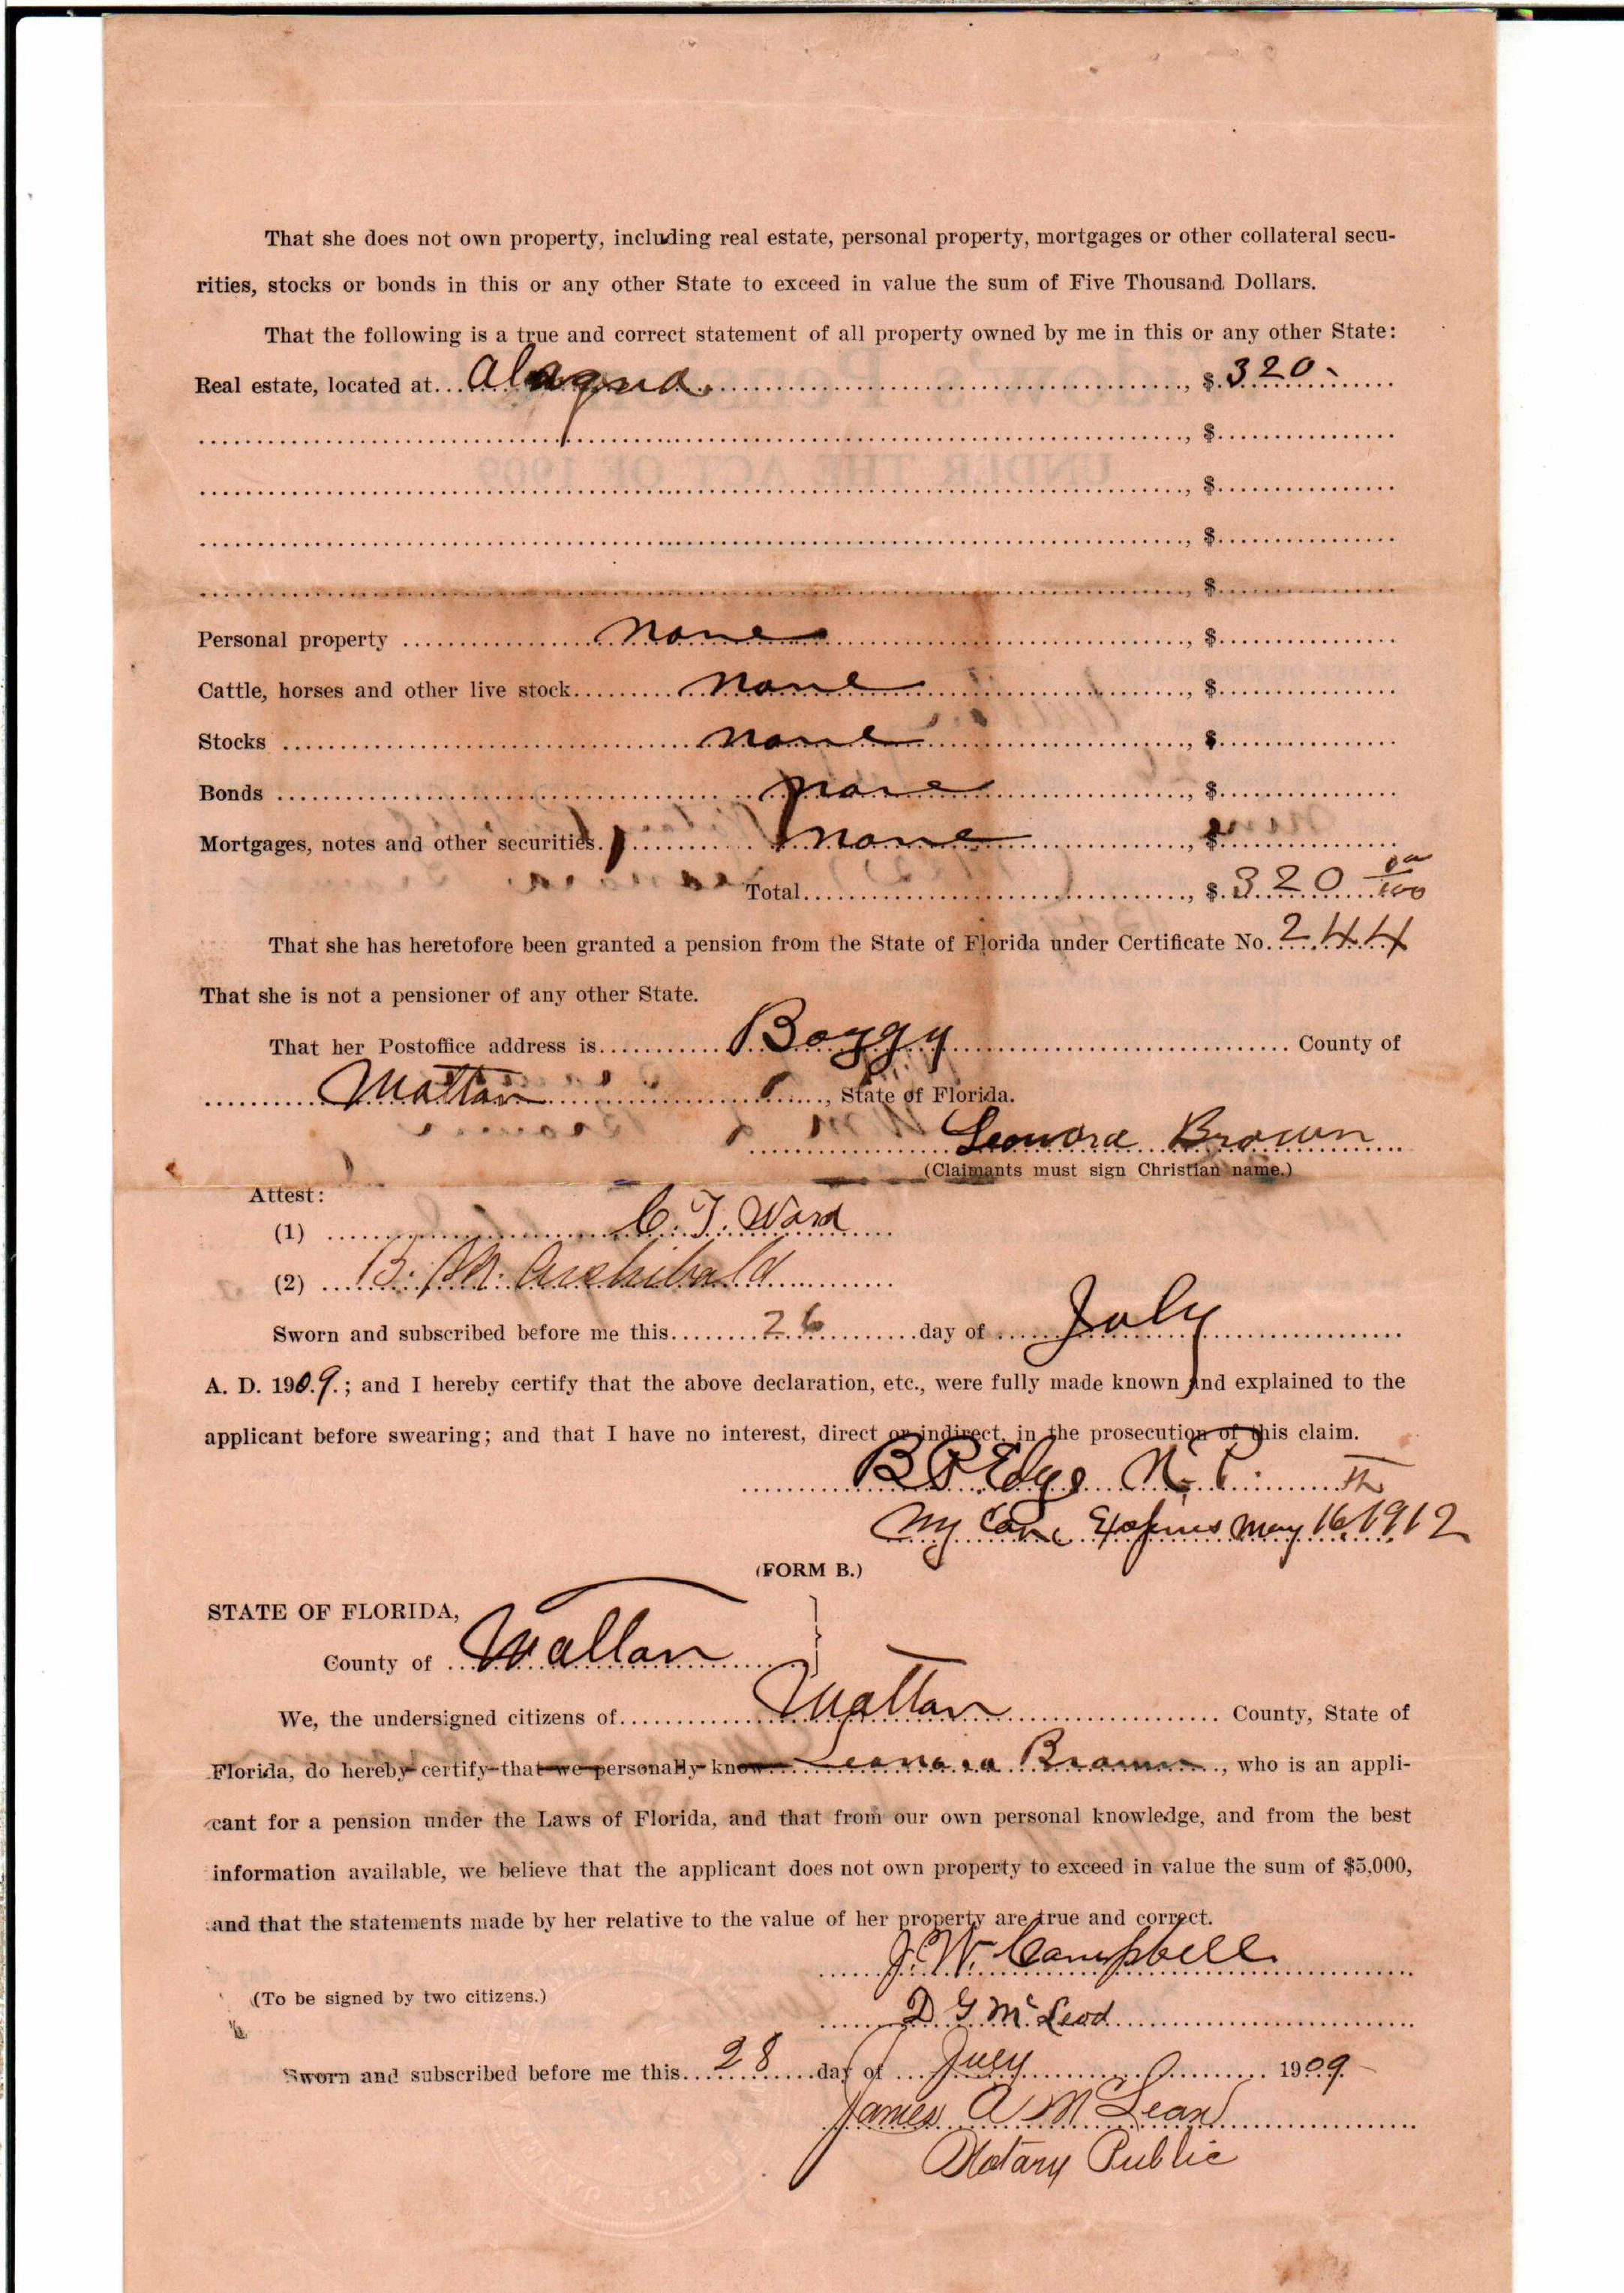 That she does not own property, including real estate, personal property, mortgages or other collateral secu-
rities, stocks or bonds in this or any other State to exceed in value the sum of Five Thousand Dollars.
That the following is a true and correct statement of all property owned by me in this or any other State:
Real estate, located at Alaqua, $ 320-
, $
, $
, $
, $
Personal property none, $
Cattle, horses and other live stock none, $
Stocks none, $
Bonds none, $
Mortgages, notes and other securities none, $
Total, $ 320 00/100
That she has heretofore been granted a pension from the State of Florida under Certificate No. 244
That she is not a pensioner of any other State.
That her Postoffice address is Boggy County of
Walton, State of Florida.
Leonora Brown
(Claimants must sign Christian name.)
Attest:
(1) C. T. Ward
(2) B. M. Archibald
Sworn and subscribed before me this 26 day of July
A. D. 1909.; and I hereby certify that the above declaration, etc., were fully made known and explained to the
applicant before swearing; and that I have no interest, direct or indirect, in the prosecution of this claim.
B P Edge N. P.
My Com Expires May 16th 1912
(FORM B.)
STATE OF FLORIDA,
County of Walton
We, the undersigned citizens of Walton County, State of
Florida, do hereby certify that we personally know Leonora Brown, who is an appli-
cant for a pension under the Laws of Florida, and that from our own personal knowledge, and from the best
information available, we believe that the applicant does not own property to exceed in value the sum of $5,000,
and that the statements made by her relative to the value of her property are true and correct.
J. W. Campbell
(To be signed by two citizens.)
D G McLeod
Sworn and subscribed before me this 28 day of July 1909
James A McLean
Notary Public